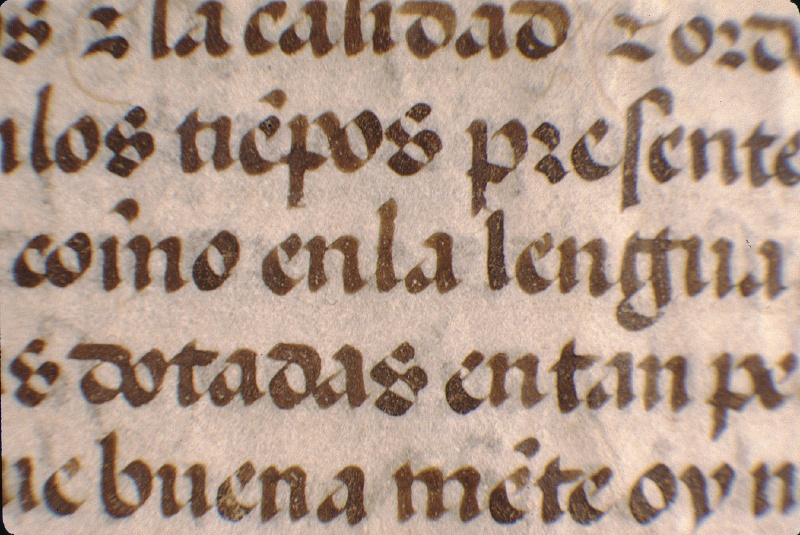 s ⁊ la calidad ⁊ ord
nlos tiẽpos presente
comno enla lengua
s dotadas en tan pe
ue buena mẽte oy n